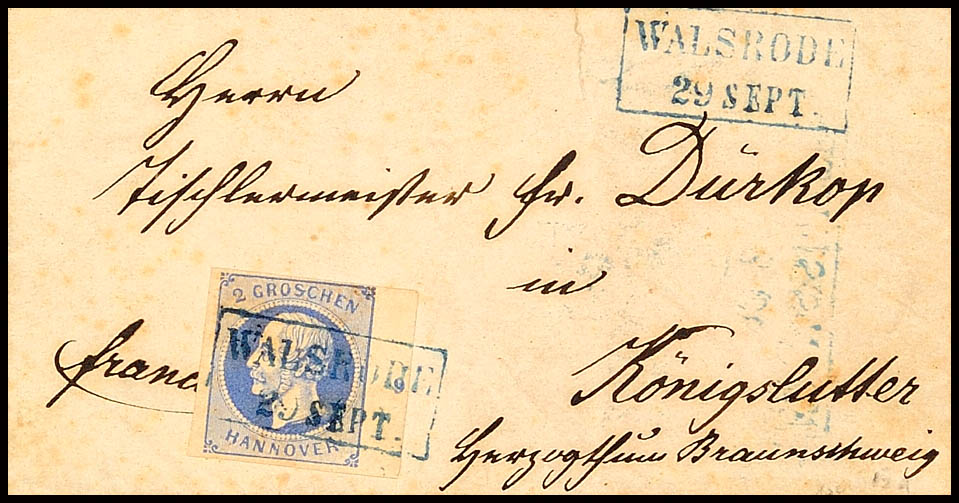 WALSRODE
29 SEPT.
Herrn
Tischlermeister Fr. Dürkop
in
2 GROSCHEN
WALSRODE
29 SEPT.
HANNOVER
franc
Königslutter
Herzogthum Braunschweig